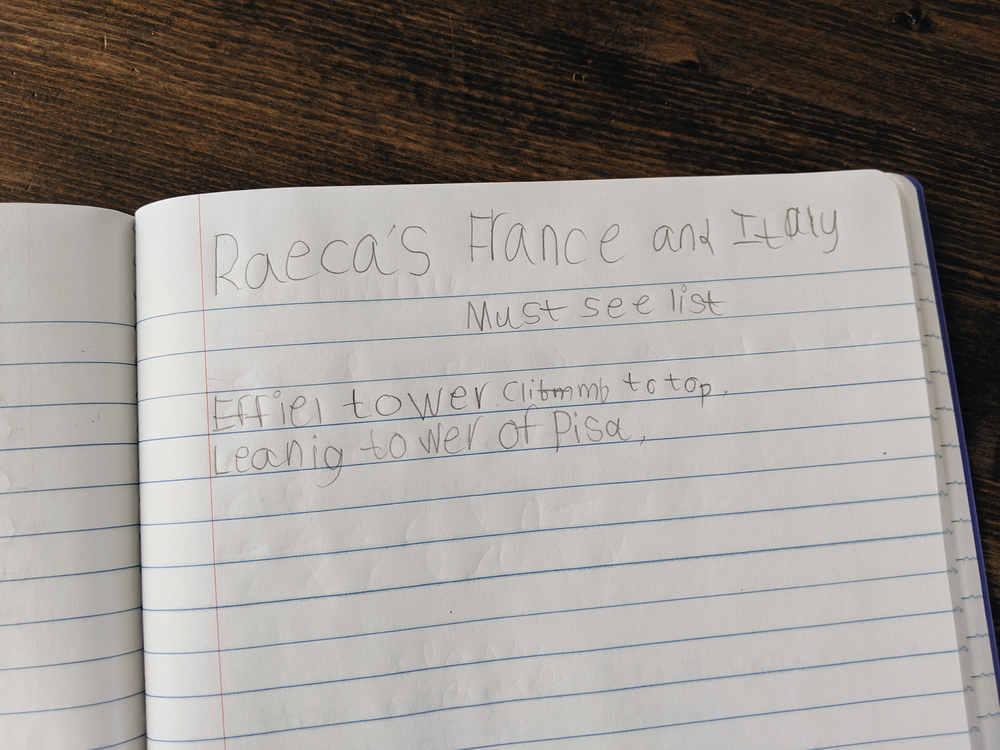 Raeca's France and Italy
Must see list
Effiel tower climb to top.
Leanig tower of Pisa,